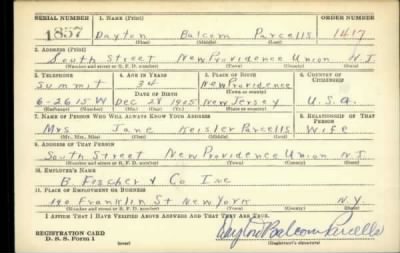 SERIAL NUMBER 1. NAME (Print) ORDER NUMBER
1857 Dayton Balcom Parcells 1417
(First) (Middle) (Last)
2. ADDRESS (Print)
South Street New Providence Union N.J.
(Number and street or R. F. D. number) (Town) (County) (State)
3. TELEPHONE 4. AGE IN YEARS 5. PLACE OF BIRTH 6. COUNTRY OF CITIZENSHIP
Summit 34 New Providence
DATE OF BIRTH (Town or county)
6-2615 W Dec 28 1905 New Jersey U.S.A.
(Exchange) (Number) (Mo.) (Day) (Yr.) (State or country)
7. NAME OF PERSON WHO WILL ALWAYS KNOW YOUR ADDRESS 8. RELATIONSHIP OF THAT PERSON
Mrs. Jane Keisler Parcells Wife
(Mr., Mrs., Miss) (First) (Middle) (Last)
9. ADDRESS OF THAT PERSON
South Street New Providence Union N.J.
(Number and street or R. F. D. number) (Town) (County) (State)
10. EMPLOYER'S NAME
B. Fischer & Co Inc
11. PLACE OF EMPLOYMENT OR BUSINESS
190 Franklin St New York N.Y.
(Number and street or R. F. D. number) (Town) (County) (State)
I AFFIRM THAT I HAVE VERIFIED ABOVE ANSWERS AND THAT THEY ARE TRUE.
REGISTRATION CARD
D. S. S. Form 1 (over) Dayton Balcom Parcells
(Registrant's signature)